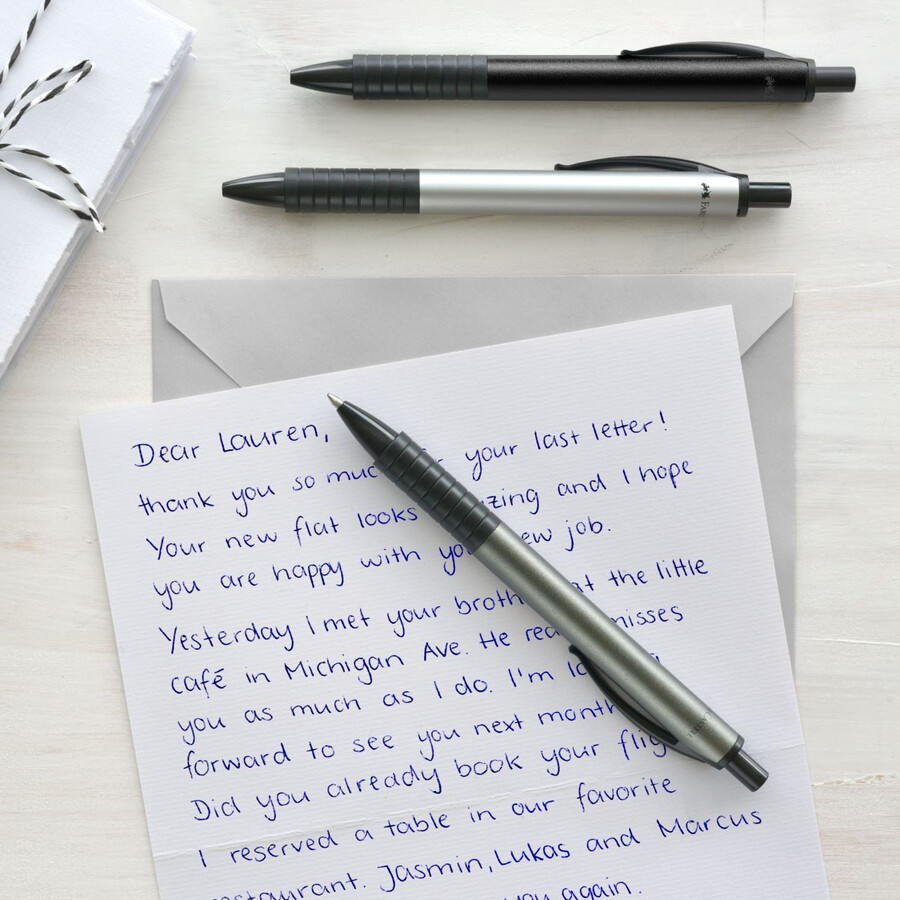 FAB
Dear Lauren,
thank you so much your last letter!
Your new flat looks zing and I hope
you are happy with yo ew job.
Yesterday I met your broth at the little
café in Michigan Ave. He rea misses
you as much as I do. I'm lo
forward to see you next month
Did you already book your flig
I reserved a table in our favorite
restaurant. Jasmin, Lukas and Marcus
you again.